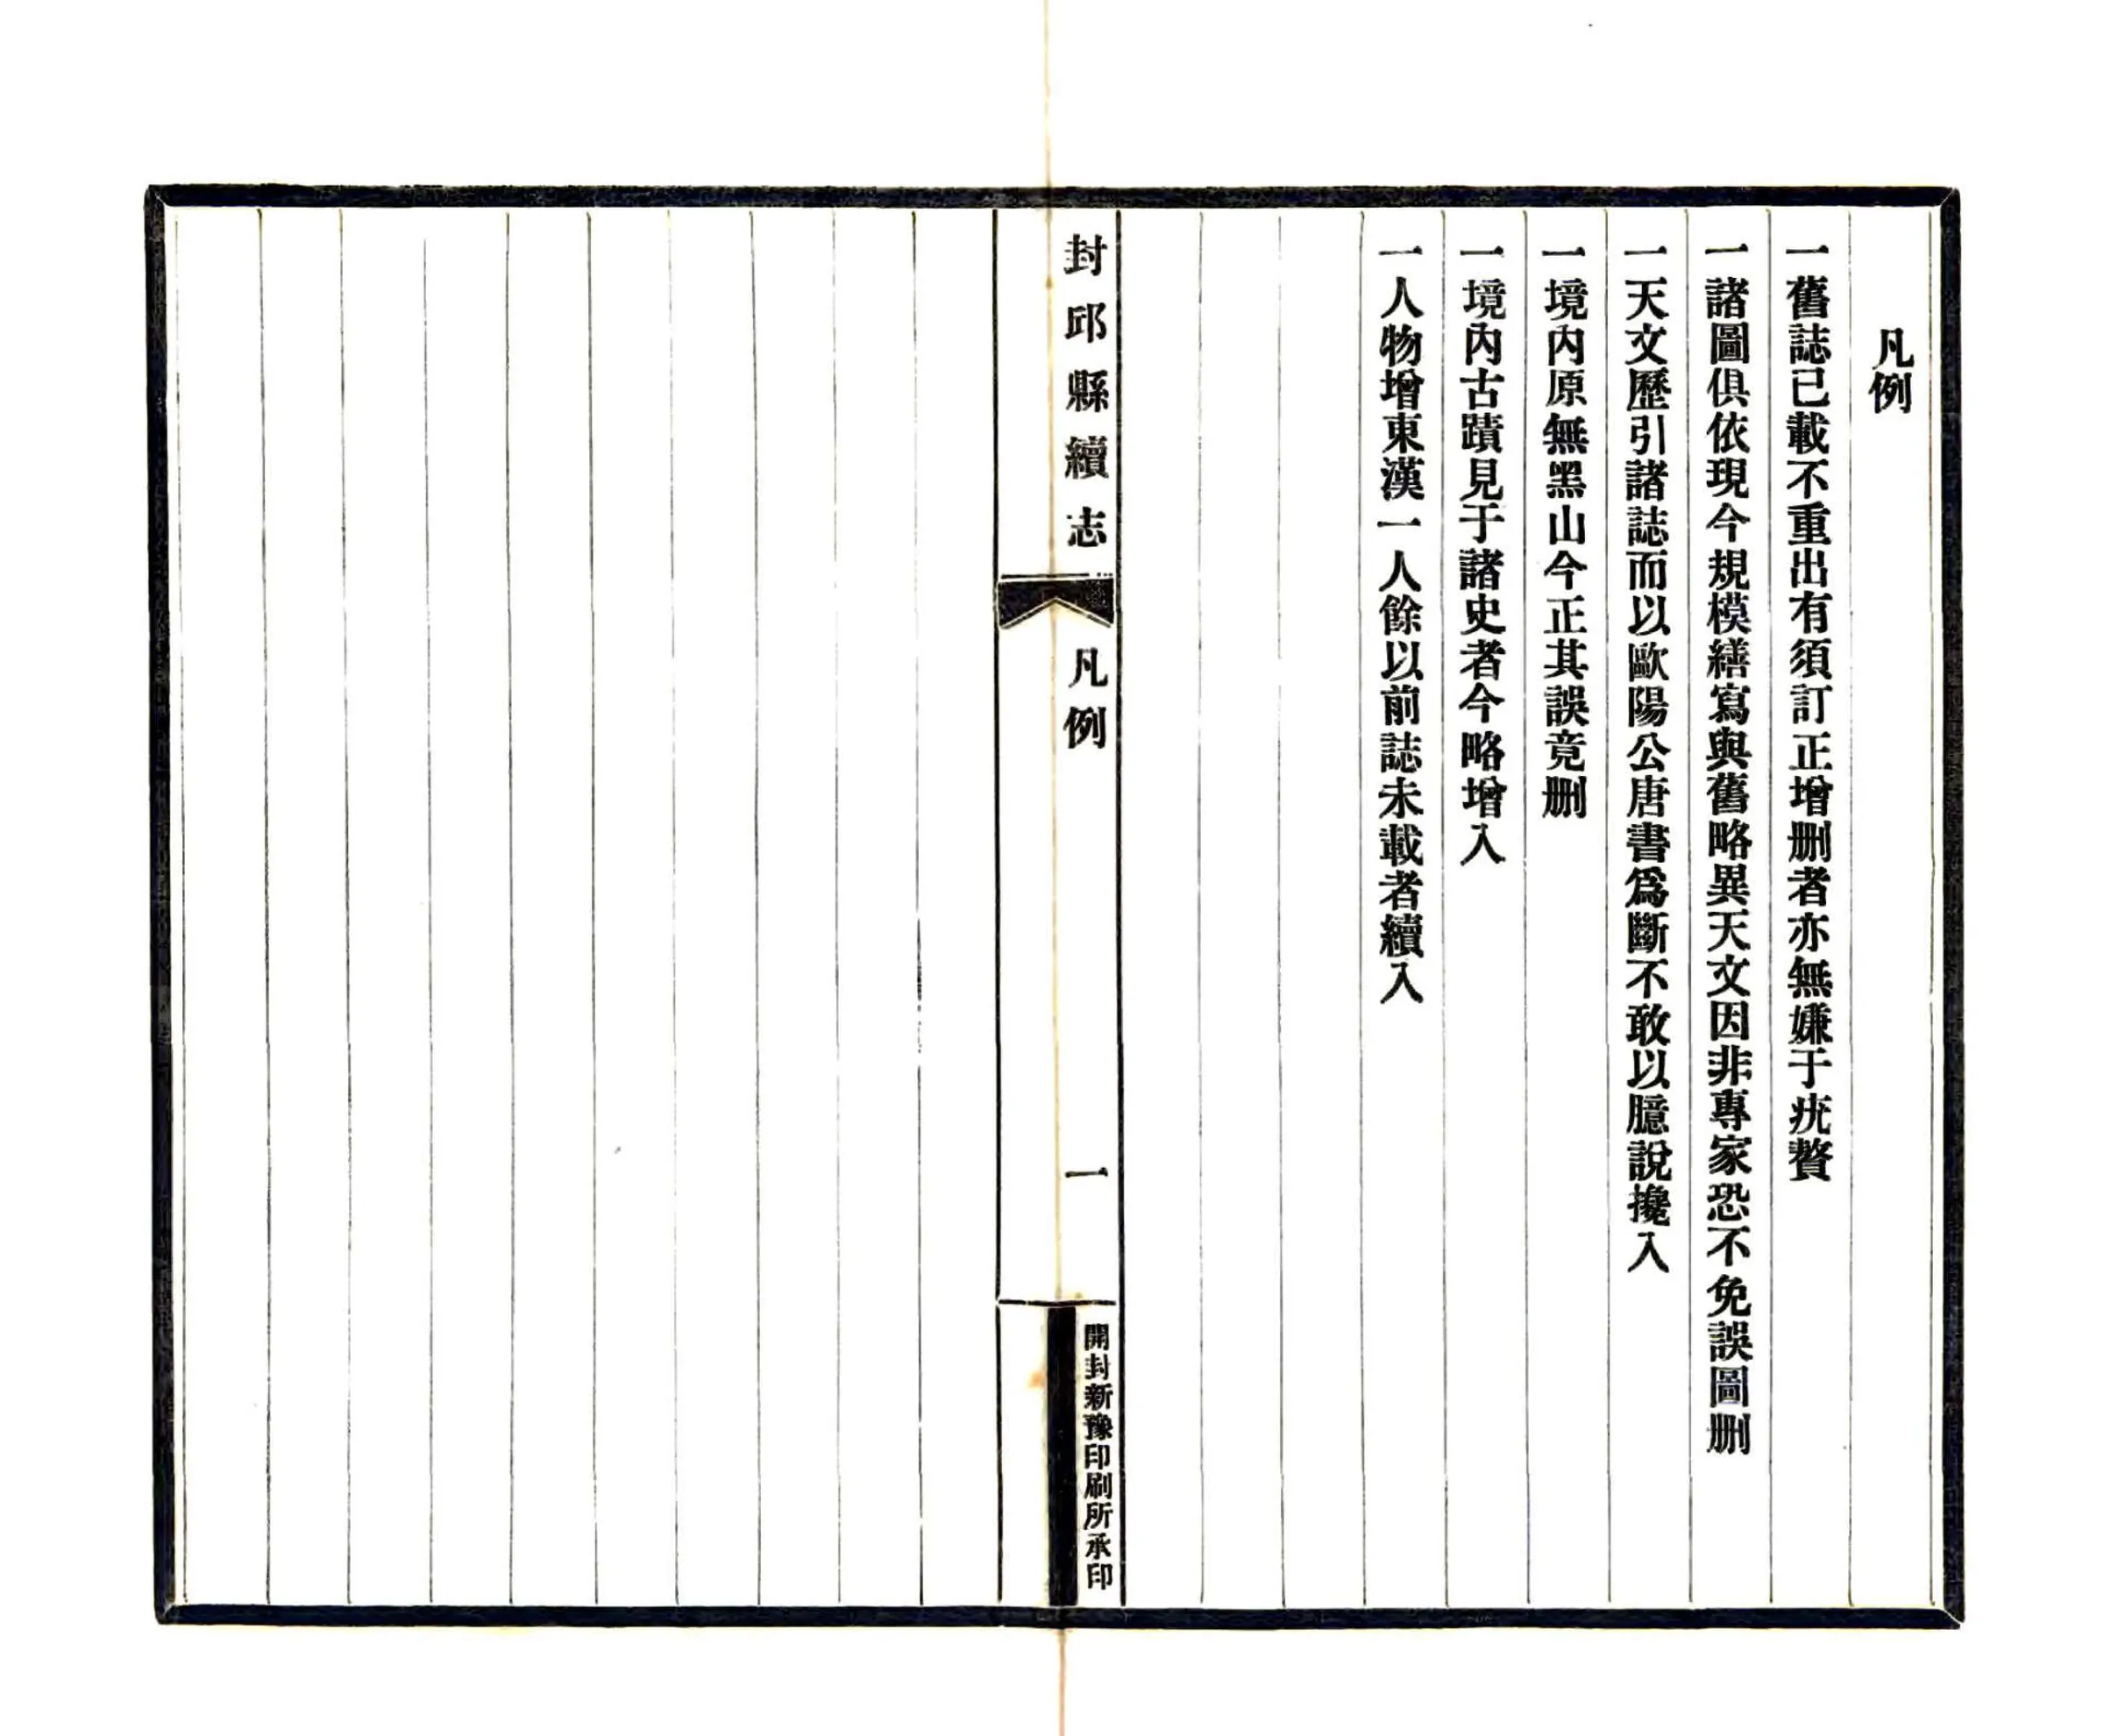 凡例
一舊誌已載不重出有須訂正增删者亦無嫌于疣贅
一諸圖俱依現今規模繕寫與舊略異天文因非專家恐不免誤圖删
一天文歷引諸誌而以歐陽公唐書爲斷不敢以臆說攙入
一境內原無黑山今正其誤竟删
一境內古蹟見于諸史者今略增入
一人物增東漢一人餘以前誌未載者續入
封邱縣續志
凡例
一
開封新豫印刷所承印